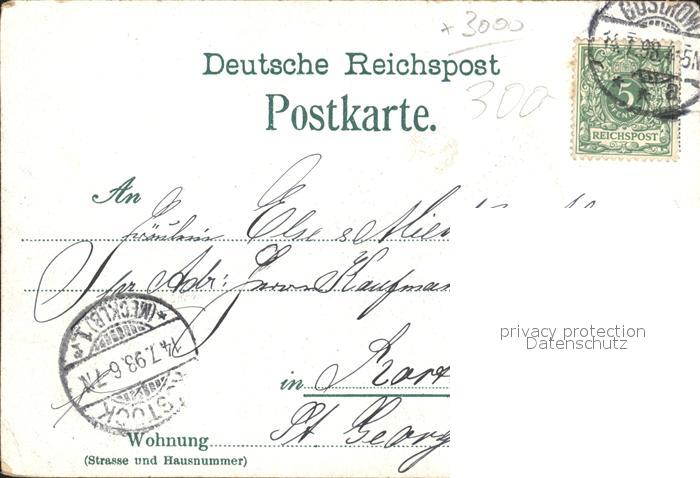 + 3000
GÜSTROW
14.7.98.4-5N
a
Deutsche Reichspost
300
5
PFENNIG
REICHSPOST
Postkarte.
An
Fräulein Else
pr. Adr: Herrn Kaufman
(MECKLB) 1.
14.7.98.6-7N
STOCK
in
privacy protection
Datenschutz
St. Georg
Wohnung
(Strasse und Hausnummer)